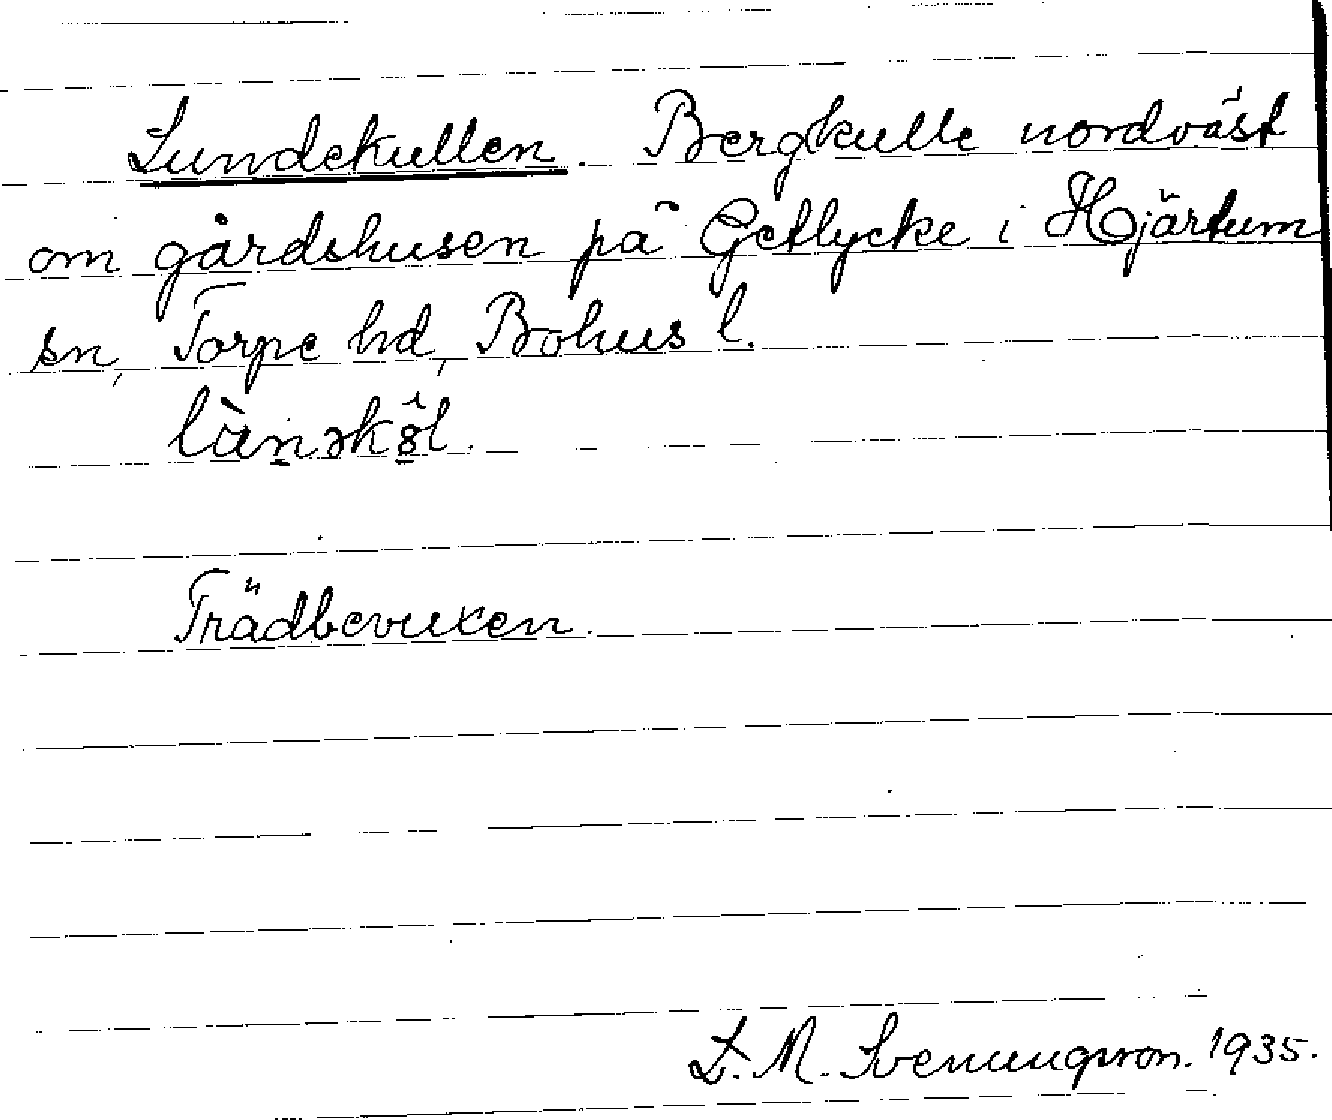 Lundekullen. Bergkulle nordväst
om gårdshusen på Getlycke i Hjärtum
sn, Torpe hd, Bohus l.
Trädbevuxen.
L. M. Svenungsson. 1935.